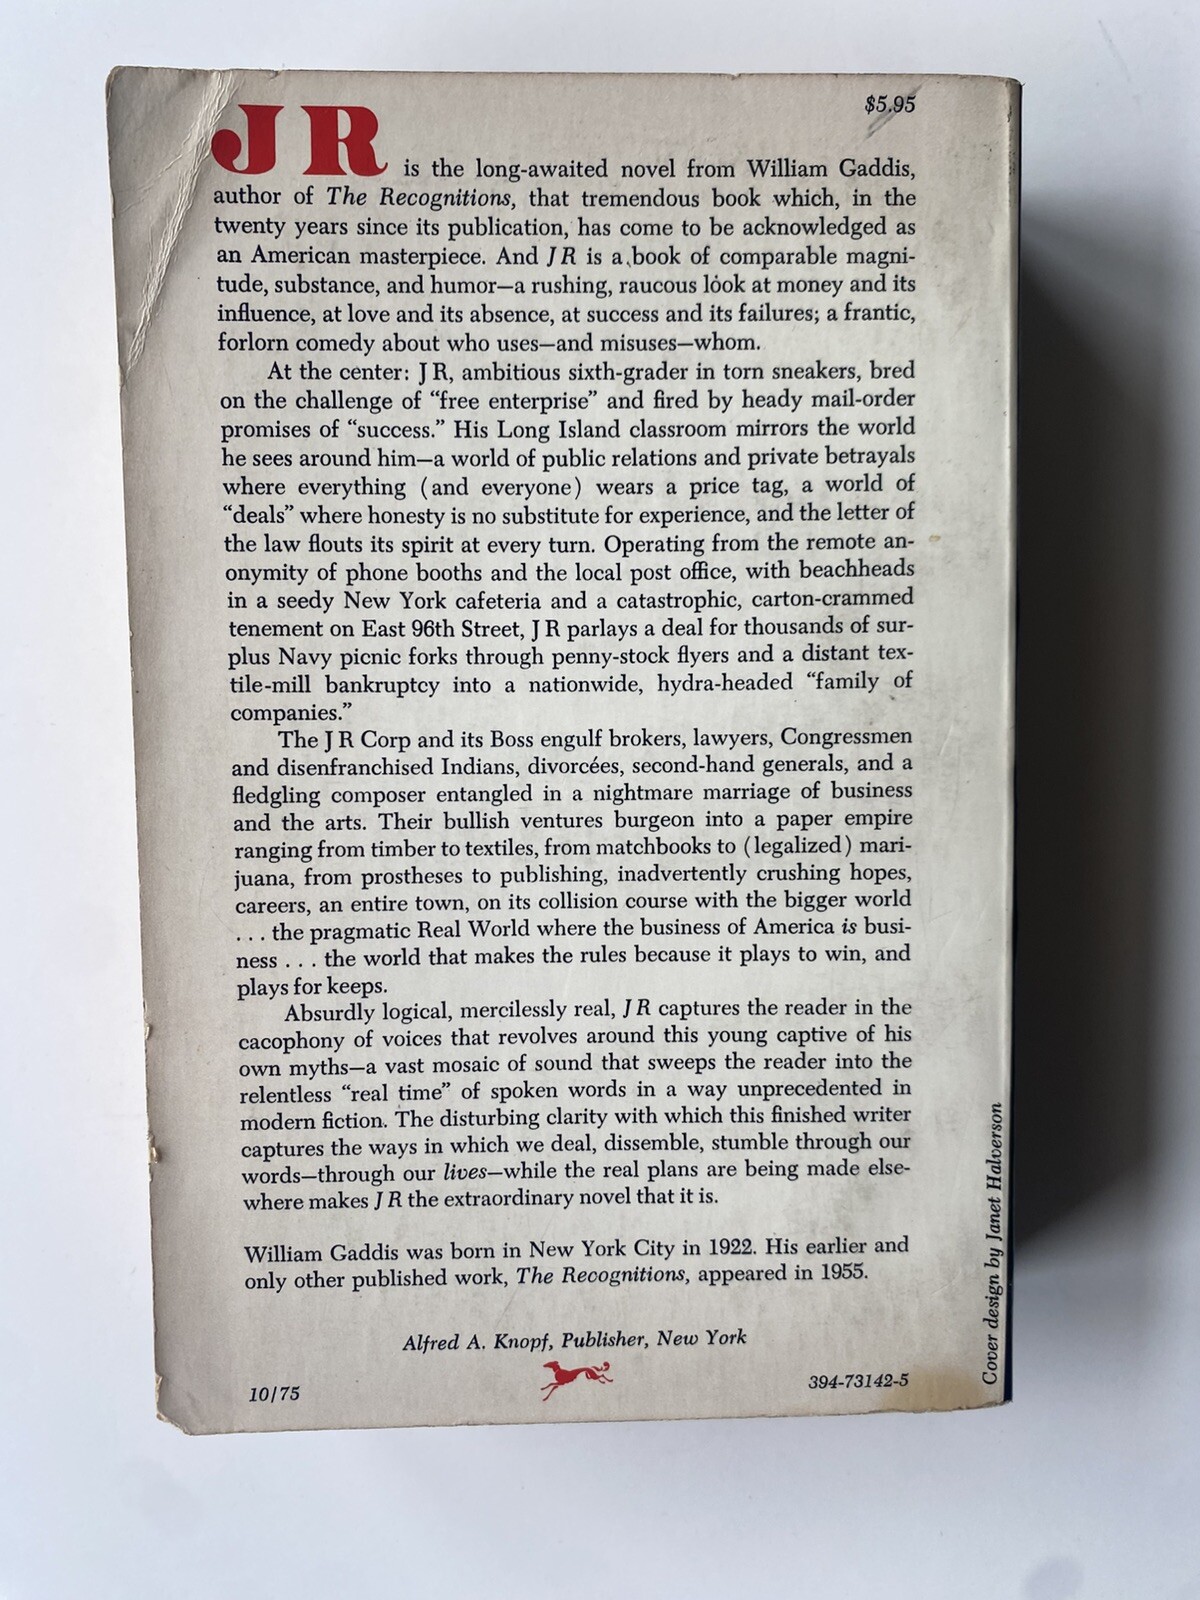 $5.95
J R is the long-awaited novel from William Gaddis,
author of The Recognitions, that tremendous book which, in the
twenty years since its publication, has come to be acknowledged as
an American masterpiece. And J R is a book of comparable magni-
tude, substance, and humor—a rushing, raucous look at money and its
influence, at love and its absence, at success and its failures; a frantic,
forlorn comedy about who uses—and misuses—whom.
At the center: J R, ambitious sixth-grader in torn sneakers, bred
on the challenge of “free enterprise” and fired by heady mail-order
promises of “success.” His Long Island classroom mirrors the world
he sees around him—a world of public relations and private betrayals
where everything (and everyone) wears a price tag, a world of
“deals” where honesty is no substitute for experience, and the letter of
the law flouts its spirit at every turn. Operating from the remote an-
onymity of phone booths and the local post office, with beachheads
in a seedy New York cafeteria and a catastrophic, carton-crammed
tenement on East 96th Street, J R parlays a deal for thousands of sur-
plus Navy picnic forks through penny-stock flyers and a distant tex-
tile-mill bankruptcy into a nationwide, hydra-headed “family of
companies.”
The J R Corp and its Boss engulf brokers, lawyers, Congressmen
and disenfranchised Indians, divorcées, second-hand generals, and a
fledgling composer entangled in a nightmare marriage of business
and the arts. Their bullish ventures burgeon into a paper empire
ranging from timber to textiles, from matchbooks to (legalized) mari-
juana, from prostheses to publishing, inadvertently crushing hopes,
careers, an entire town, on its collision course with the bigger world
. . . the pragmatic Real World where the business of America is busi-
ness . . . the world that makes the rules because it plays to win, and
plays for keeps.
Absurdly logical, mercilessly real, J R captures the reader in the
cacophony of voices that revolves around this young captive of his
own myths—a vast mosaic of sound that sweeps the reader into the
relentless “real time” of spoken words in a way unprecedented in
modern fiction. The disturbing clarity with which this finished writer
captures the ways in which we deal, dissemble, stumble through our
words—through our lives—while the real plans are being made else-
where makes J R the extraordinary novel that it is.
William Gaddis was born in New York City in 1922. His earlier and
only other published work, The Recognitions, appeared in 1955.
Alfred A. Knopf, Publisher, New York
10/75
394-73142-5
Cover design by Janet Halverson